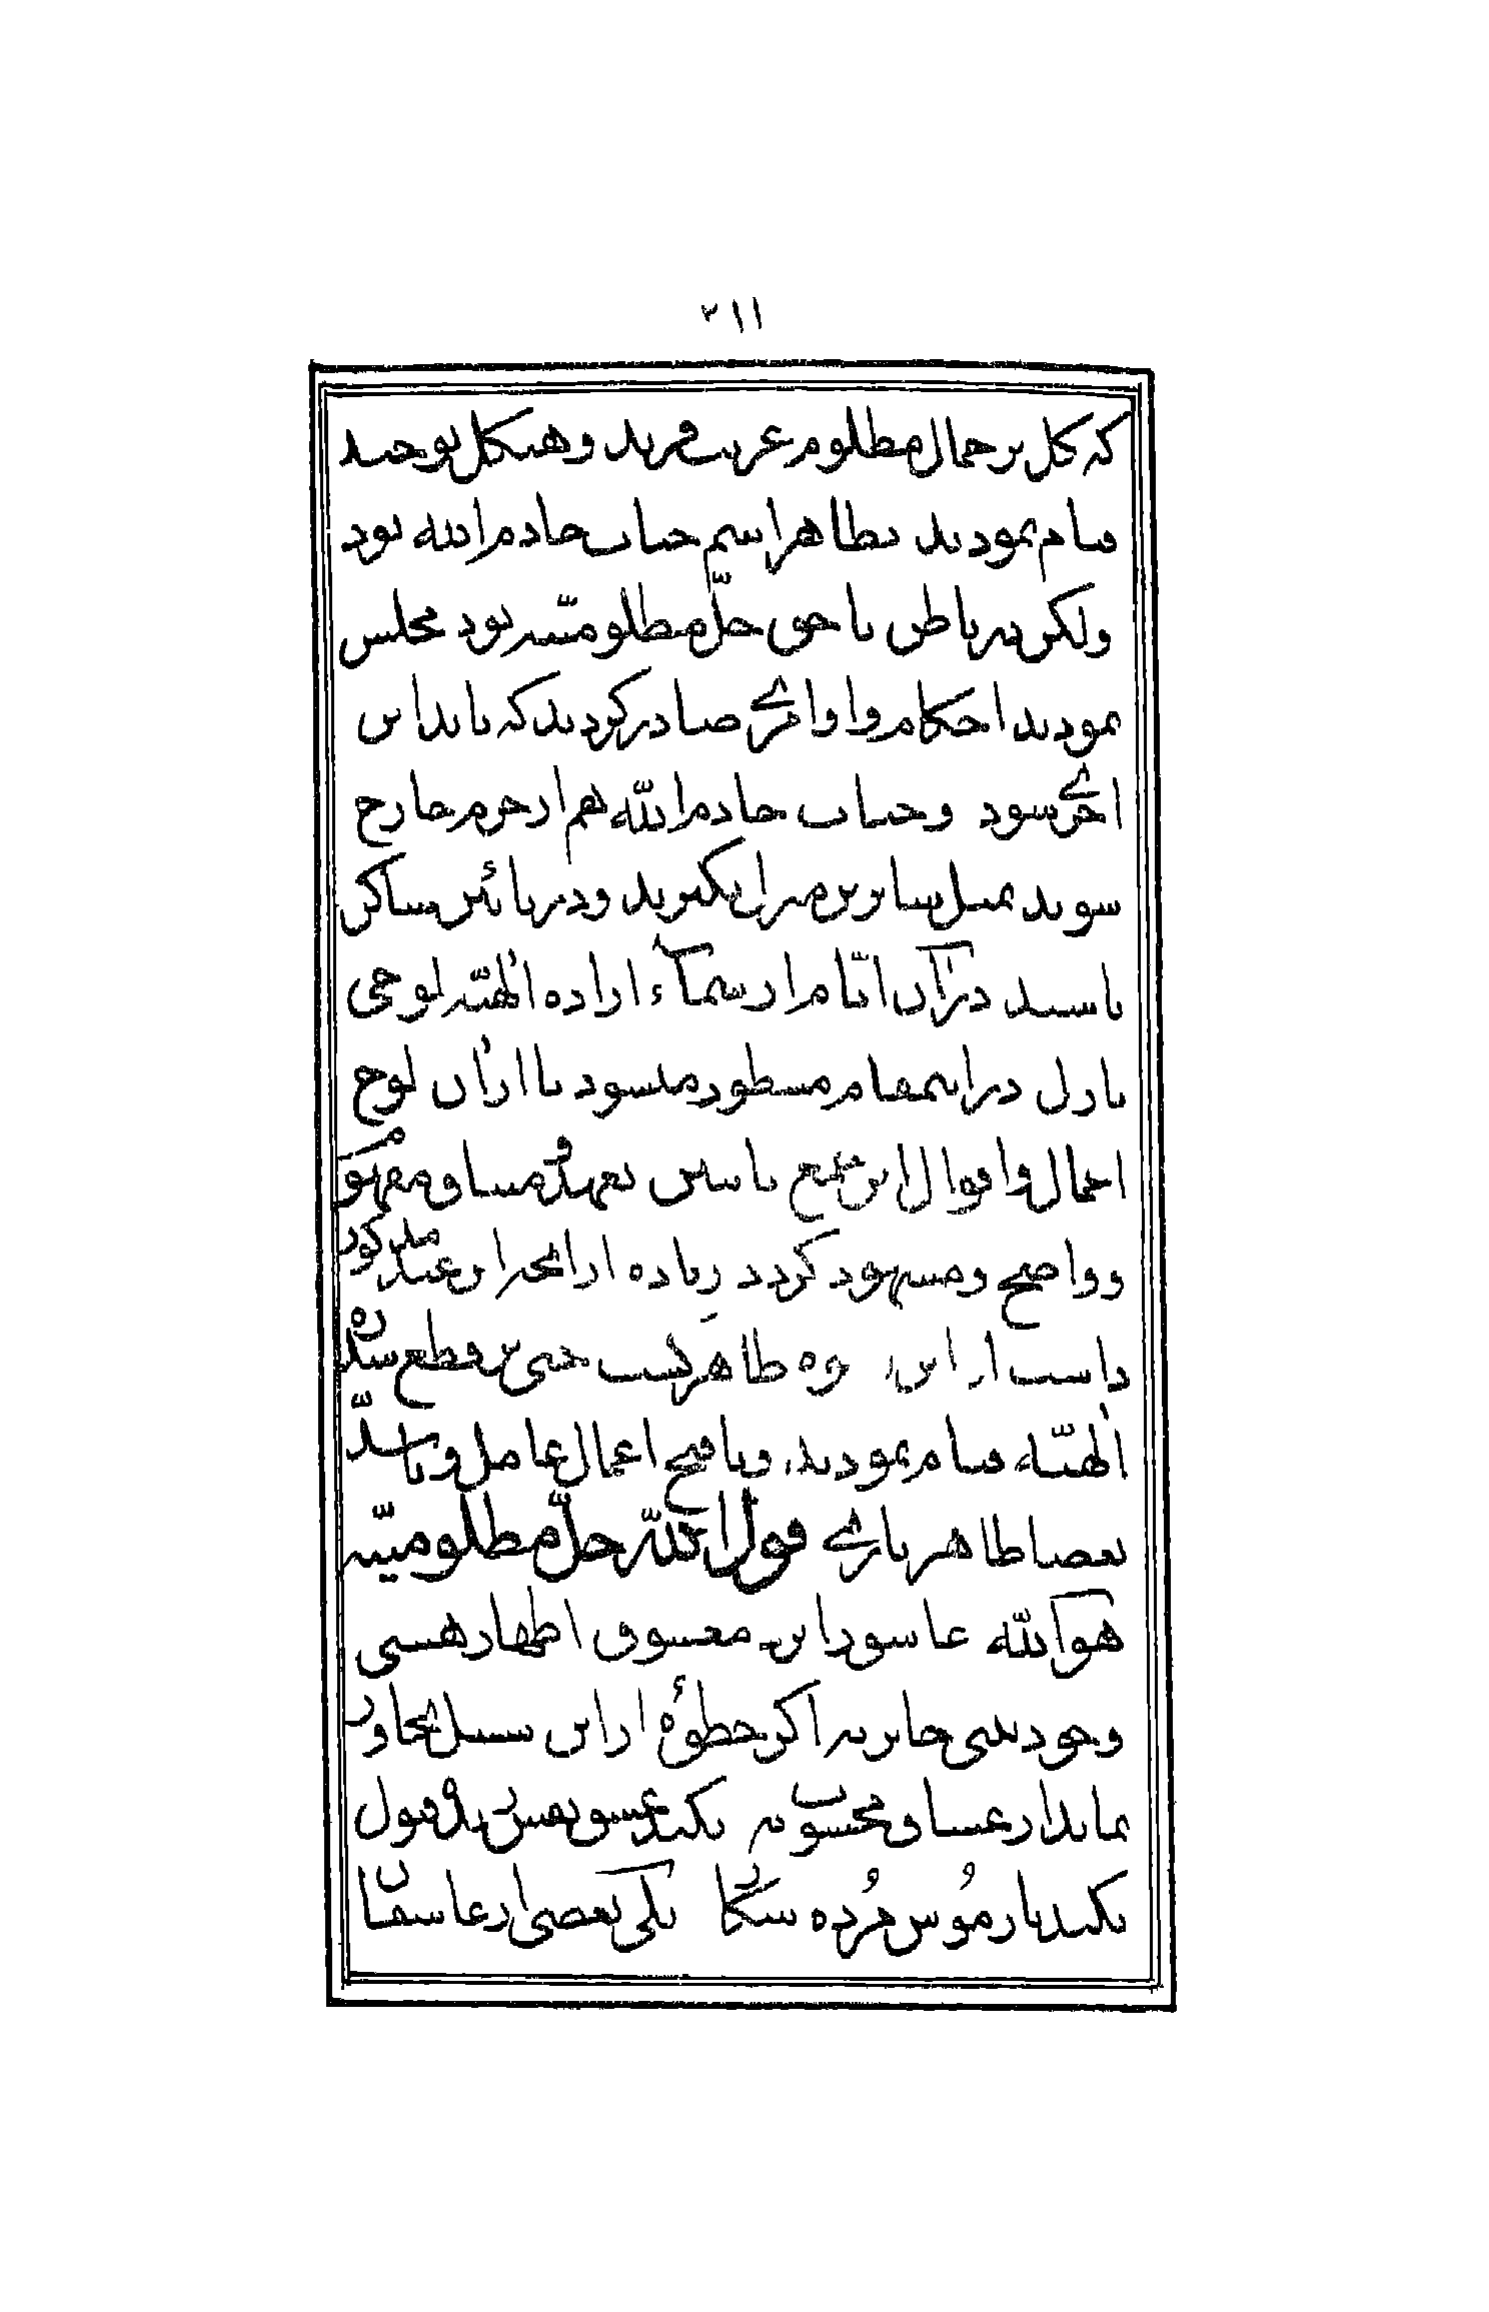 ۲۱۱
که کل بر جمال مظلوم غریب فرید و هیکل توحید
قیام نمودند بظاهر اسم جناب خادم الله بود
ولکن در باطن با حق جلّ مظلومیّته بود مجلس
نمودند احکام و اوامری صادر کردند که باید این
اجری شود و جناب خادم الله هم از حرم خارج
شوند بمثل سایرین منزل بگیرند و در پائین ساکن
باشند در آن ایّام از سمآء اراده الهیّه لوحی
نازل در اینمقام مسطور میشود تا از آن لوح
اعمال و اقوال این مجمع ناسین عهد و میثاق مفهوم
و واضح و مشهود گردد زیاده از آنچه این عبد مذکور
داشت از این وه ظاهر است حتی بر قطع سدره
الهیّه قیام نمودند و قبایح اعمال عامل و باشدّ
بعضا ظاهر باری قول الله جلّ مظلومیّته
هو الله عاشق را بر معشوق اظهار هستی
وجود بینی جایز نه اگر خطوۀ از این سبیل تجاوز
نماید از عشاق محسوب نه نکند عشق نفس زنده قبول
نکند باز موش مرده شکار بلی بعضی از عاشقان